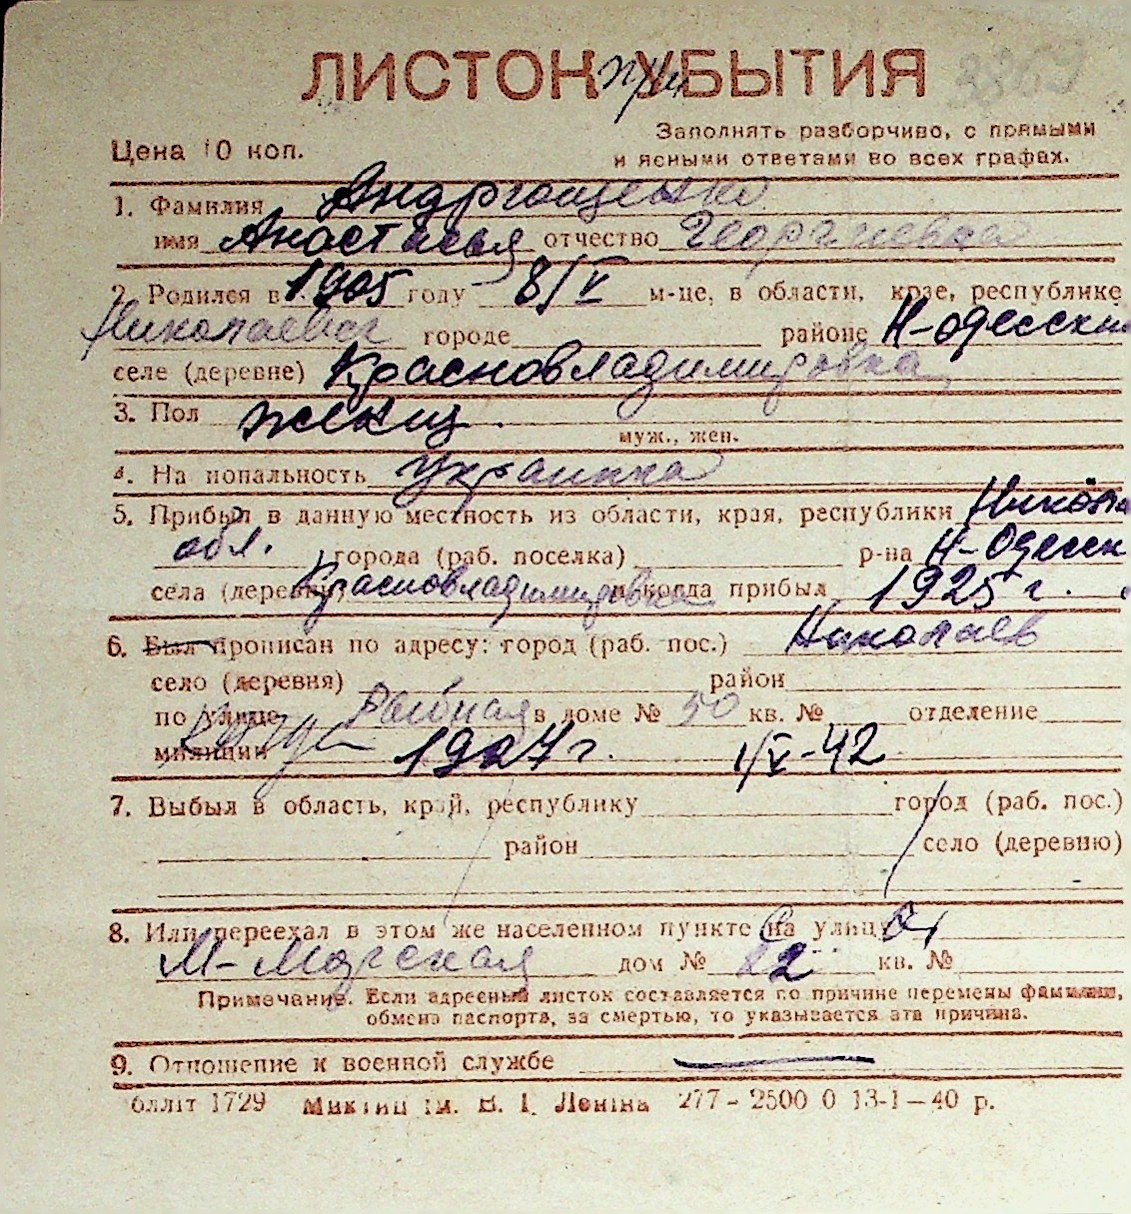 ЛИСТОК при УБЫТИЯ
3369
Цена 10 коп.
Заполнять разборчиво, с прямыми
и ясными ответами во всех графах.
1. Фамилия Андрющенко
имя Анастасья отчество Георгиевна
2. Родился в 1905 году 8/V м-це, в области, крае, республике
Николаевск городе районе Н-Одесский
селе (деревне) Красновладимировка
3. Пол женщ.
муж., жен.
4. На иональность украинка
5. Прибыл в данную местность из области, края, республики Никола
обл. города (раб. поселка) р-на Н-Одесск
села (деревни) Красновладимировка и когда прибыл 1925 г.
6. Был прописан по адресу: город (раб. пос.) Николаев
село (деревня) район
по улице в доме № 50 кв. № отделение
милиции 1927 г. 1/V-42
7. Выбыл в область, край, республику город (раб. пос.)
район село (деревню)
8. Или переехал в этом же населенном пункте на улицу
М-Морская дом № 22 кв. №
Примечание. Если адресный листок составляется по причине перемены фамилии,
обмена паспорта, за смертью, то указывается эта причина.
9. Отношение к военной службе —
обліт 1729 Миктип ім. В. І. Леніна 277 - 2500 0 13-1-40 р.